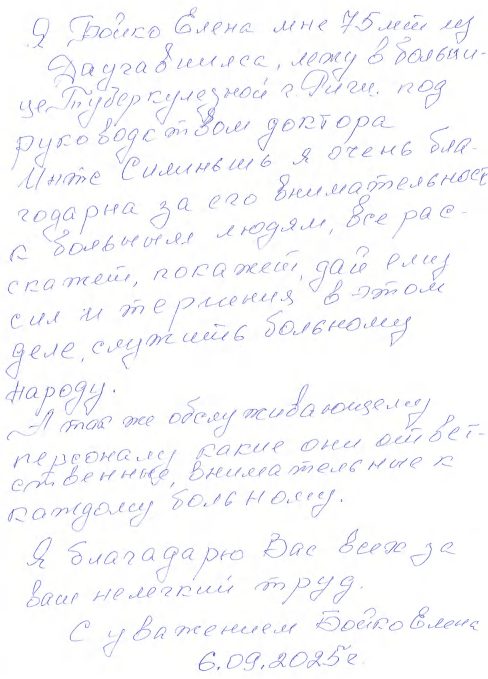 Я Бойко Елена мне 75 лет из
Даугавпилса, лежу в больни-
це Туберкулезной г. Риги. под
руководством доктора
Интс Силиньшь я очень бла-
годарна за его внимательность
к больным людям, все рас-
скажет, покажет, дай ему
сил и терпения в этом
деле, служить больному
народу.
А так же обслуживающему
персоналу какие они ответ-
ственные, внимательные к
каждому больному.
Я благадарю Вас всех за
ваш нелегкий труд.
С уважением Бойко Елена
6.09.2025г.